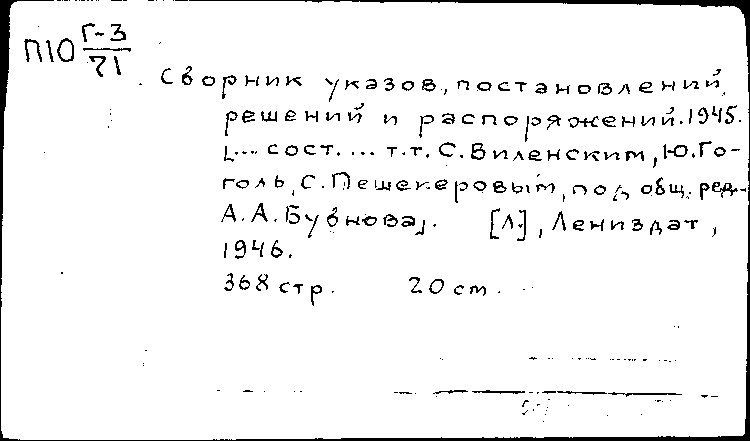 П10 Г-3
71
Сборник указов, постановлений,
решений и распоряжений. 1945.
[... сост. ... т.т. С. Виленским, Ю. Го-
голь, С. Пешекеровым, под общ. ред.
А. А. Бубнова]. [Л.], Лениздат,
1946.
368 стр. 20 см.